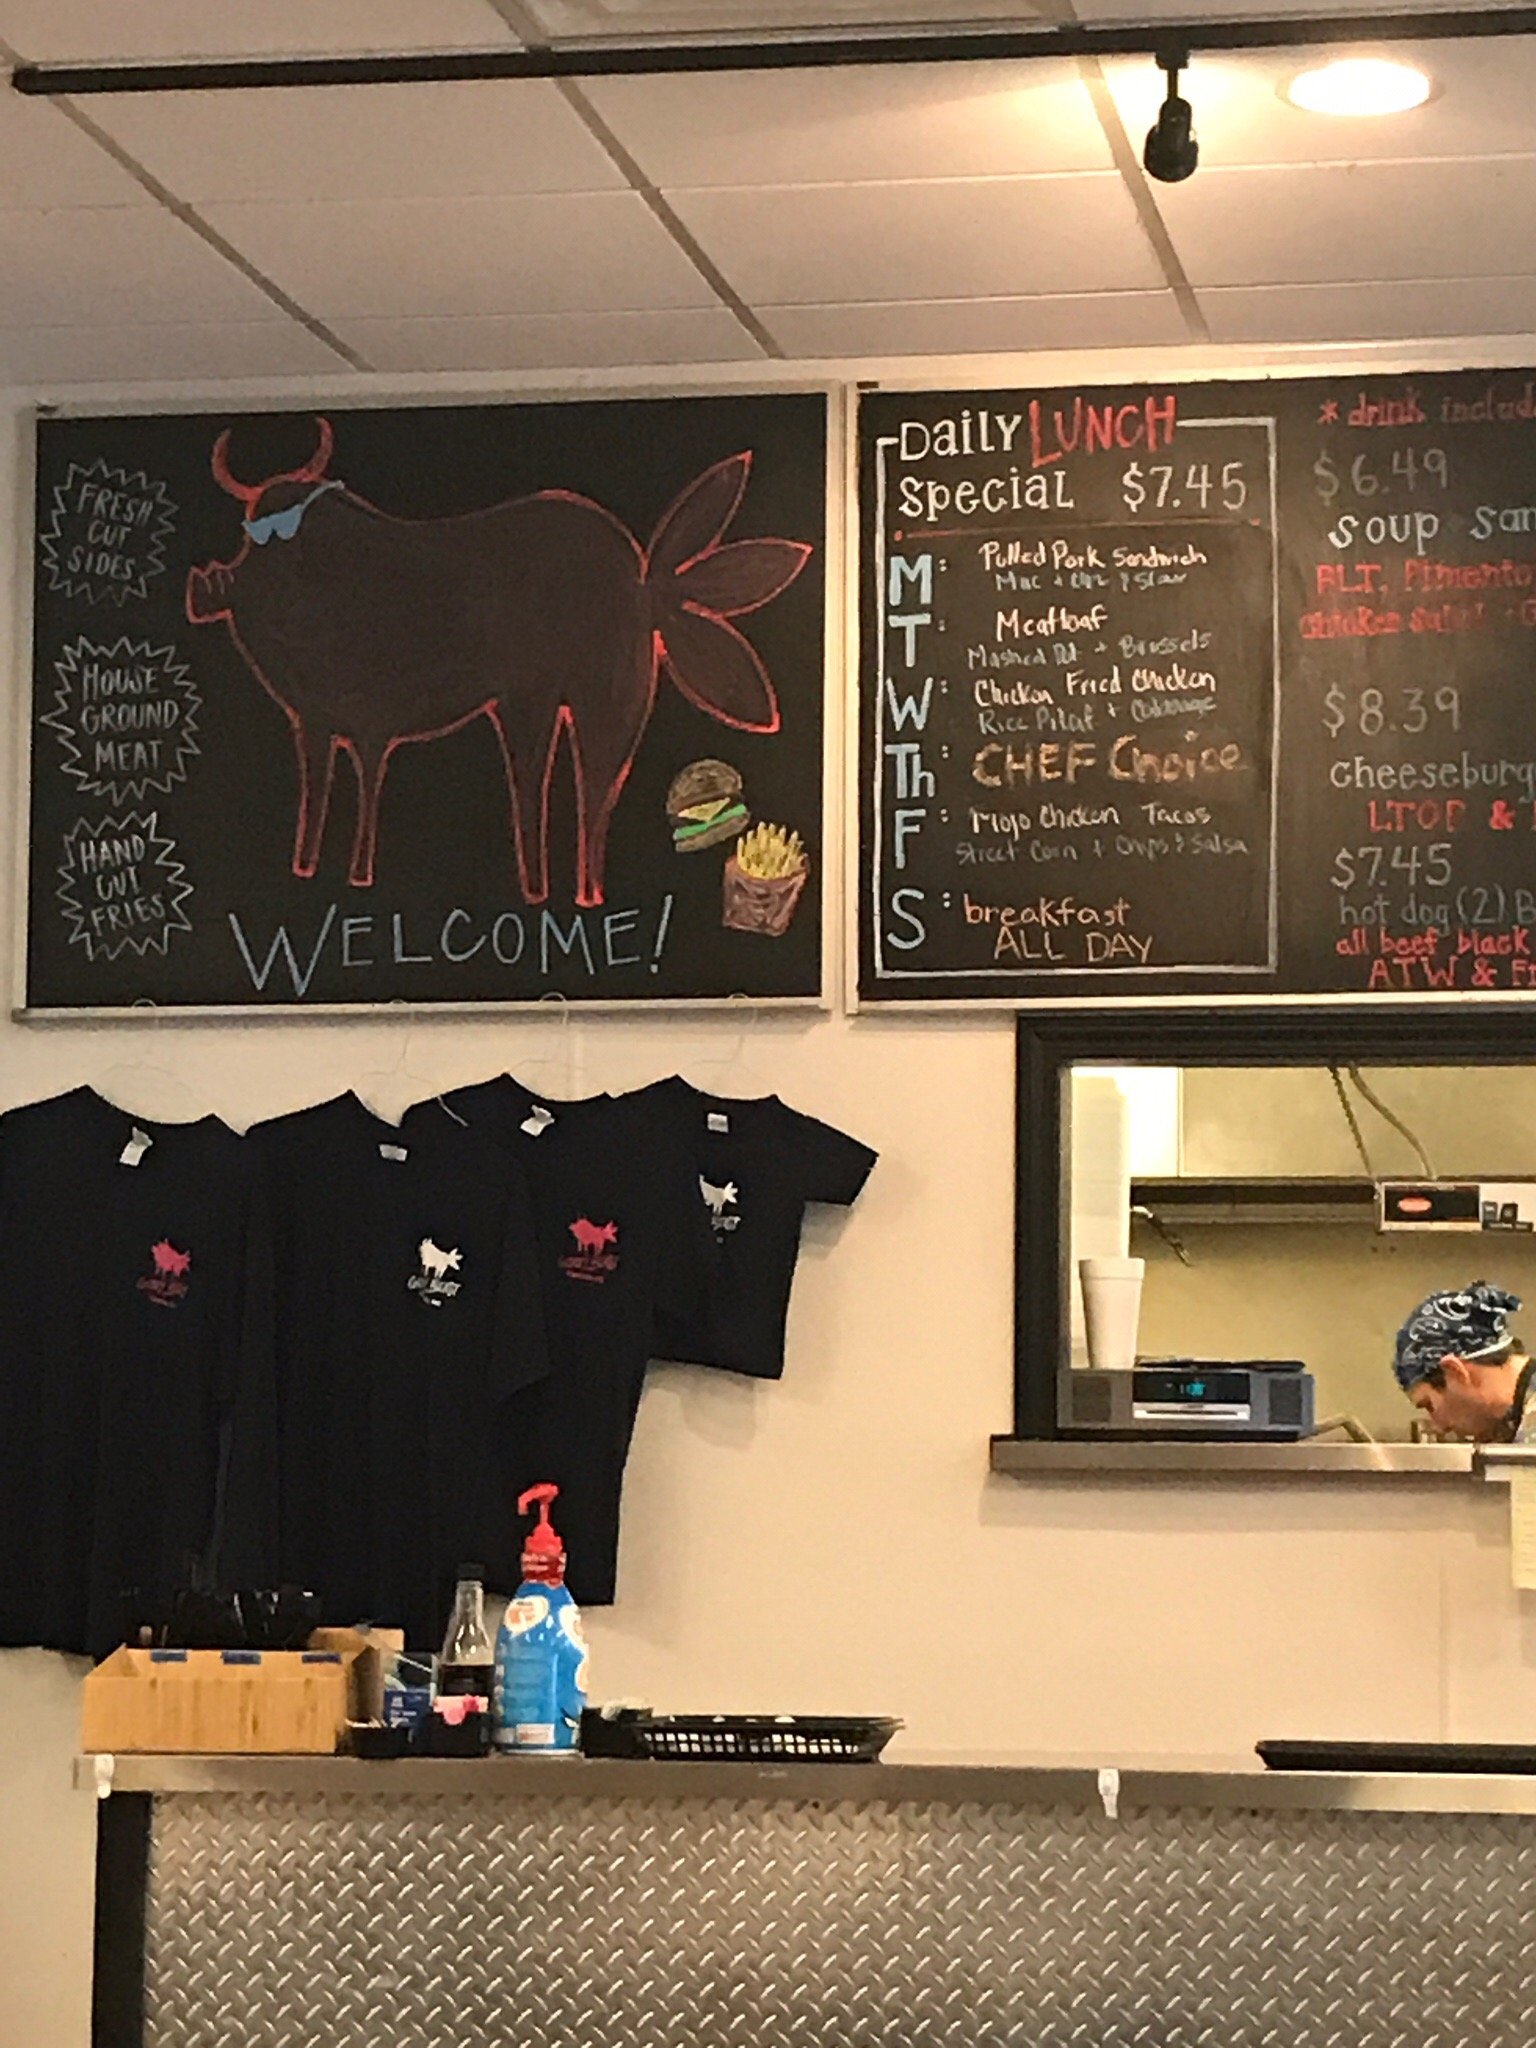 FRESH
CUT
SIDES
HOUSE
GROUND
MEAT
HAND
CUT
FRIES
WELCOME!
Daily LUNCH
Special $7.45
M: Pulled Pork Sandwich
Mac + Chz & Slaw
T: Meatloaf
Mashed Pot + Brussels
W: Chicken Fried Chicken
Rice Pilaf + Cabbage
Th: CHEF Choice
F: Mojo Chicken Tacos
Street Corn + Chips & Salsa
S: breakfast
ALL DAY
* drink includ
$6.49
Soup San
BLT, Pimento
Chicken Salad
$8.39
Cheeseburg
LTOP &
$7.45
hot dog (2) B
all beef black
ATW & Fr